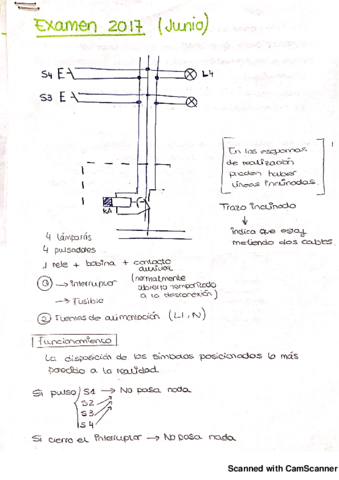 Examen 2017 (Junio)
S4 E
L4
S3 E
En los esquemas
de realización
pueden haber
líneas inclinadas.
Trazo inclinado
indica que estoy
metiendo dos cables
KA
4 lámparas
4 pulsadores
1 rele + bobina + contacto
auxiliar
(normalmente
abierto temporizado
a la desconexión)
③ → Interruptor
→ Fusible
② Fuentes de alimentación (L1, N)
Funcionamiento
La disposición de los símbolos posicionados lo más
parecido a la realidad.
Si pulso S1 → No pasa nada
S2
S3
S4
Si cierro el interruptor → No pasa nada
Scanned with CamScanner